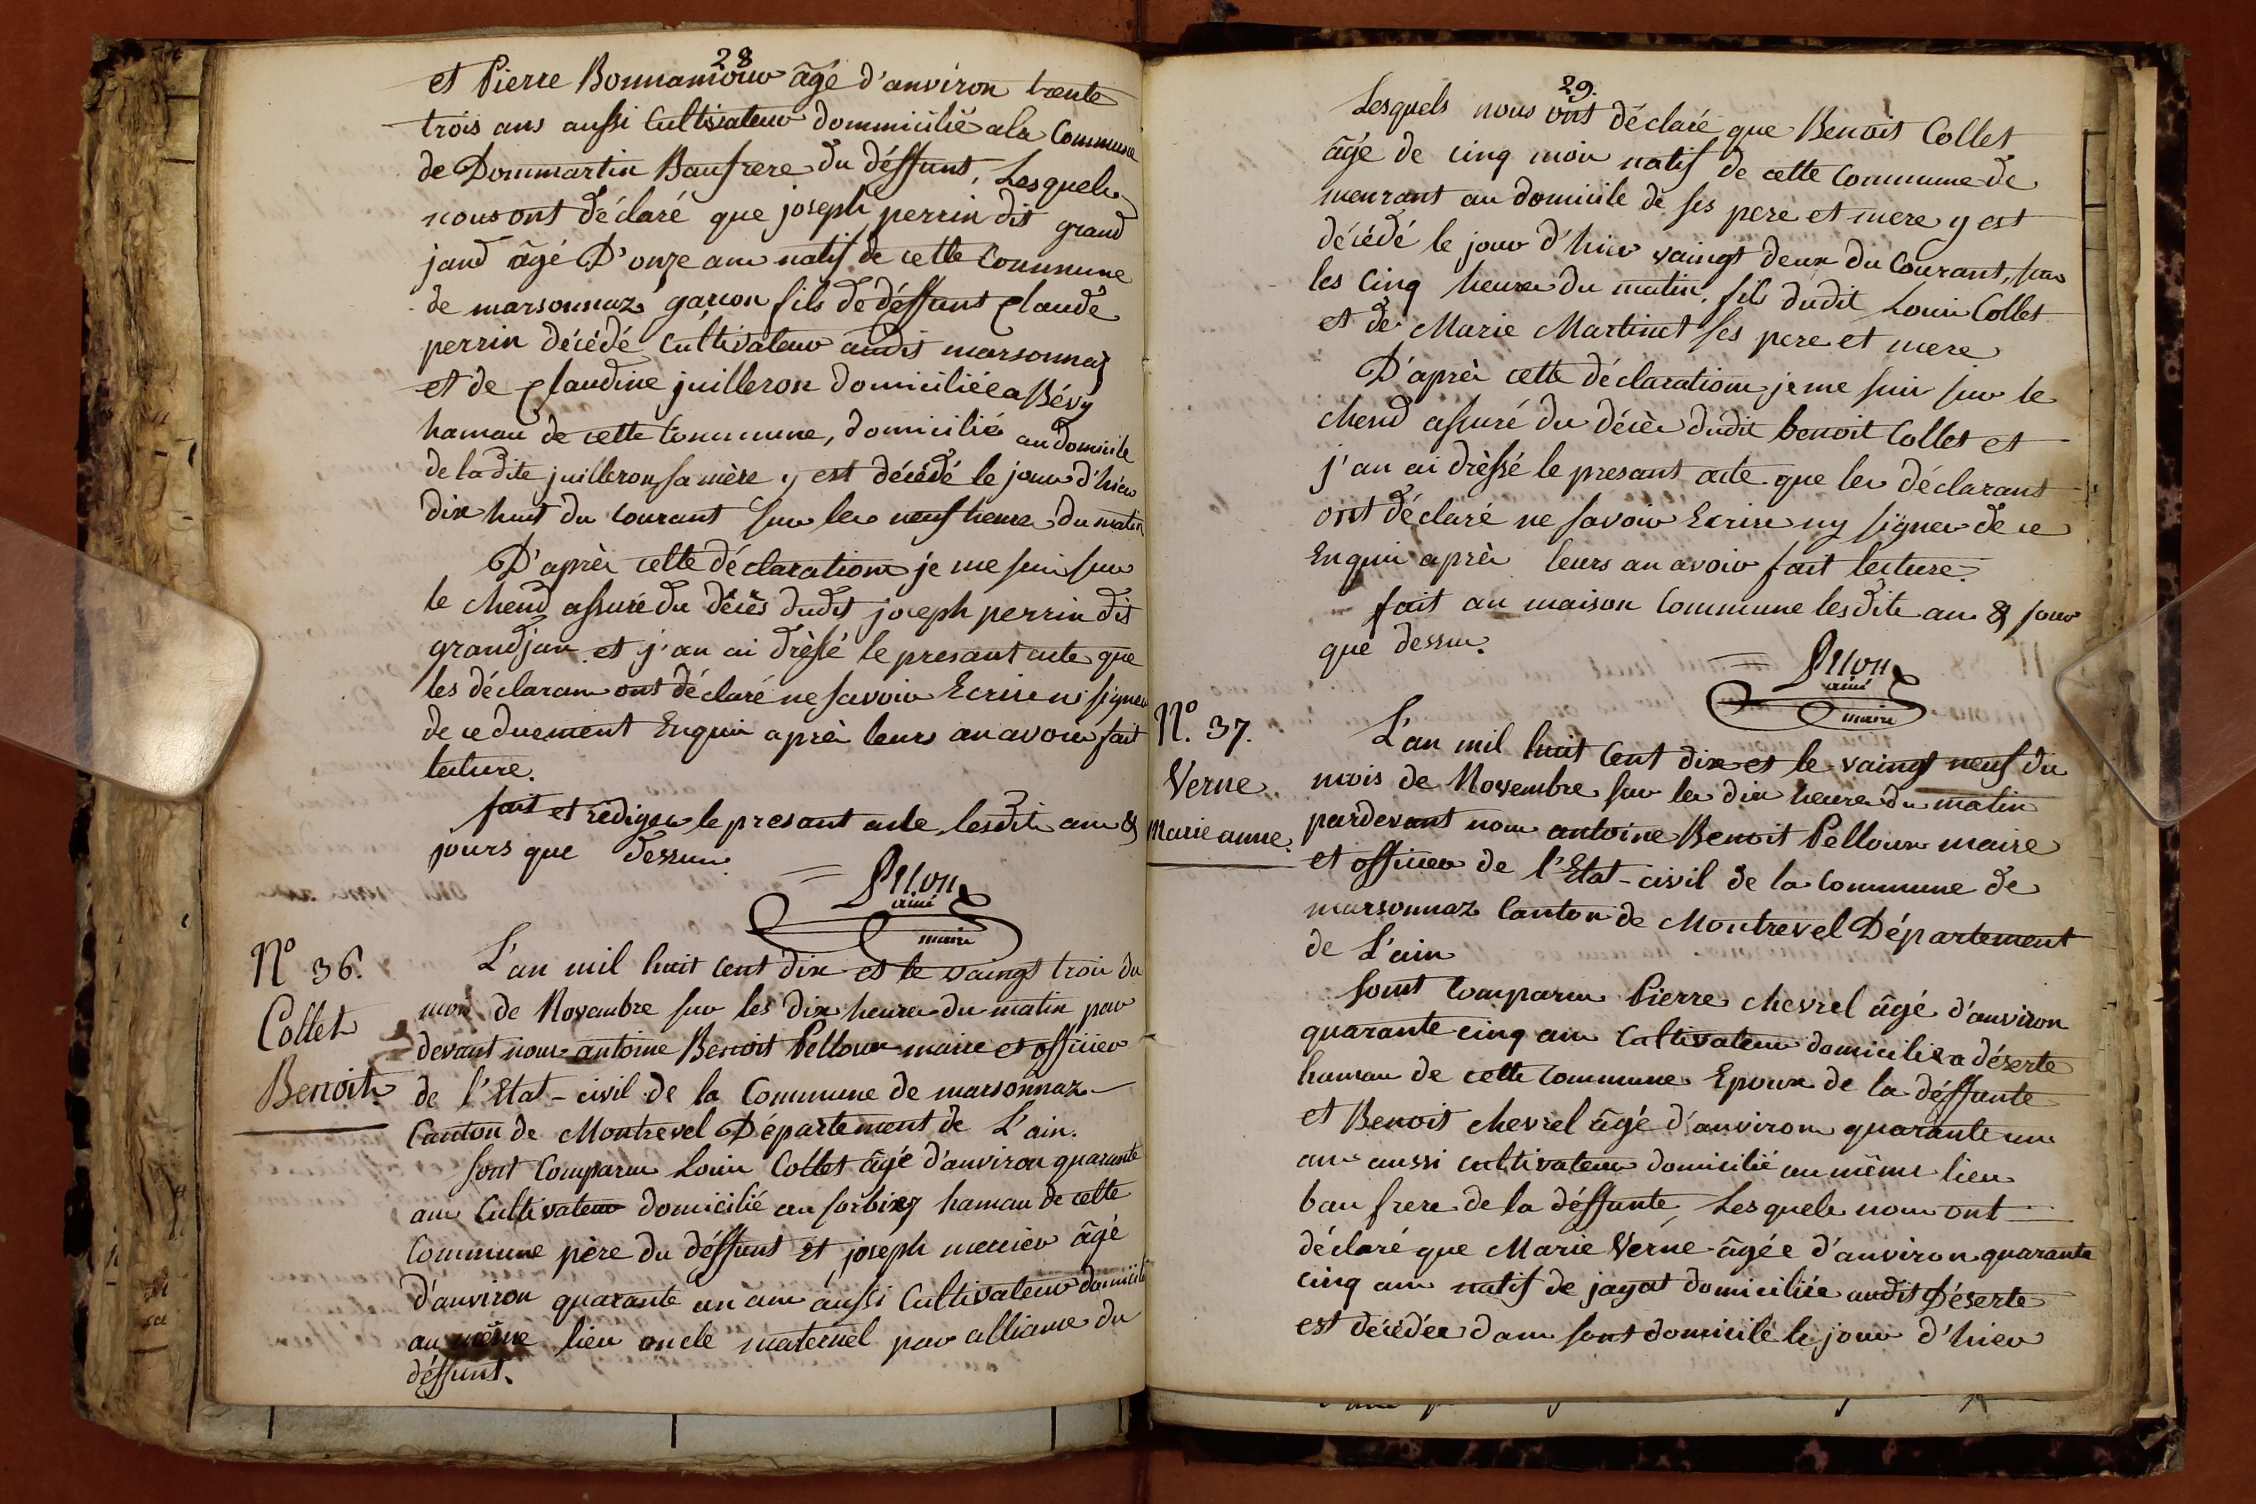 28
et Pierre Bonnamour âgé d'anviron trente
trois ans aussi Cultivateur dommicilié a la Commune
de Dommartin Baufrere du déffunt, Lesquels
nous ont déclaré que joseph perrin dit grand
jand âgé D'onze ans natif de cette Commune
de marsonnaz garçon fils de déffunt Claude
perrin décédé Cultivateur audit marsonnaz
et de Claudine juilleron domiciliée a Bévy
hamau de cette Commune, domicilié au domicile
de la dite juilleron sa mère y est décédé le jour d'hier
dix huit du courant sur les neuf heures du matin
D'après cette déclaration je me suis sur
le chend assuré du décès dudit joseph perrin dit
grandjan et j'an ai drèssé le presant acte que
les déclarans ont déclaré ne savoir Ecrire ni signer
de ce duement Enquis après leurs an avoir fait
lecture.
fait et redigé le presant acte lesdits ans &
jours que dessus.
Pelloux
ainé
maire
N° 36.
Collet
Benoit
L'an mil huit cent dix et le vaingt trois du
mois de Novembre sur les dix heures du matin par
devant nous antoine Benoit Pelloux maire et officier
de l'Etat-civil de la Commune de marsonnaz
Canton de Montrevel Département de L'ain.
sont Comparus Louis Collet âgé d'anviron quarante
ans Cultivateur domicilié au sorbiey hamau de cette
Commune père du déffunt et joséph mercier âgé
d'anviron quarante un ans aussi Cultivateur domicilié
au même lieu oncle maternel par alliance du
déffunt.
29.
Lesquels nous ont déclaré que Benoit Collet
âgé de cinq mois natif de cette Commune de
meurant au domicile de ses pere et mere y est
décédé le jour d'hier vaingt deux du Courant, sur
les Cinq heures du matin, fils dudit Louis Collet
et de Marie Martinet ses pere et mere
D'après cette déclaration je me suis sur le
chend assuré du décès dudit benoit Collet et
j'an ai drèssé le presant acte que les déclarant
ont déclaré ne savoir Ecrire ny signer de ce
Enquis après leurs an avoir fait lecture.
fait an maison Commune lesdits ans & jour
que dessus.
Pelloux
ainé
maire
N° 37.
Verne
Marie anne.
L'an mil huit Cent dix et le vaingt neuf du
mois de Novembre sur les dix heures du matin
pardevant nous antoine Benoit Pelloux maire
et officier de l'Etat-civil de la Commune de
marsonnaz Canton de Montrevel Département
de L'ain
sont Comparus Pierre chevrel âgé d'anviron
quarante cinq ans Cultivateur domicilié a déserte
hamau de cette Commune Epoux de la déffunte
et Benoit chevrel âgé d'anviron quarante un
ans aussi cultivateur domicilié au même lieu
bau frere de la déffunte, Lesquels nous ont
déclaré que Marie Verne âgée d'anviron quarante
cinq ans natif de jayat domiciliée audit Déserte
est décédée dans sont domicile le jour d'hier